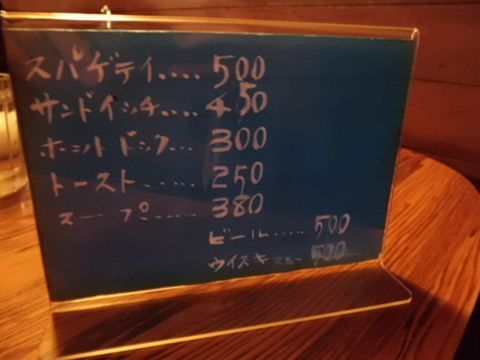 スパゲテイ..... 500
サンドイッチ..... 450
ホットドック.... 300
トースト...... 250
スープ...... 380
ビール..... 500
ウイスキー... 500